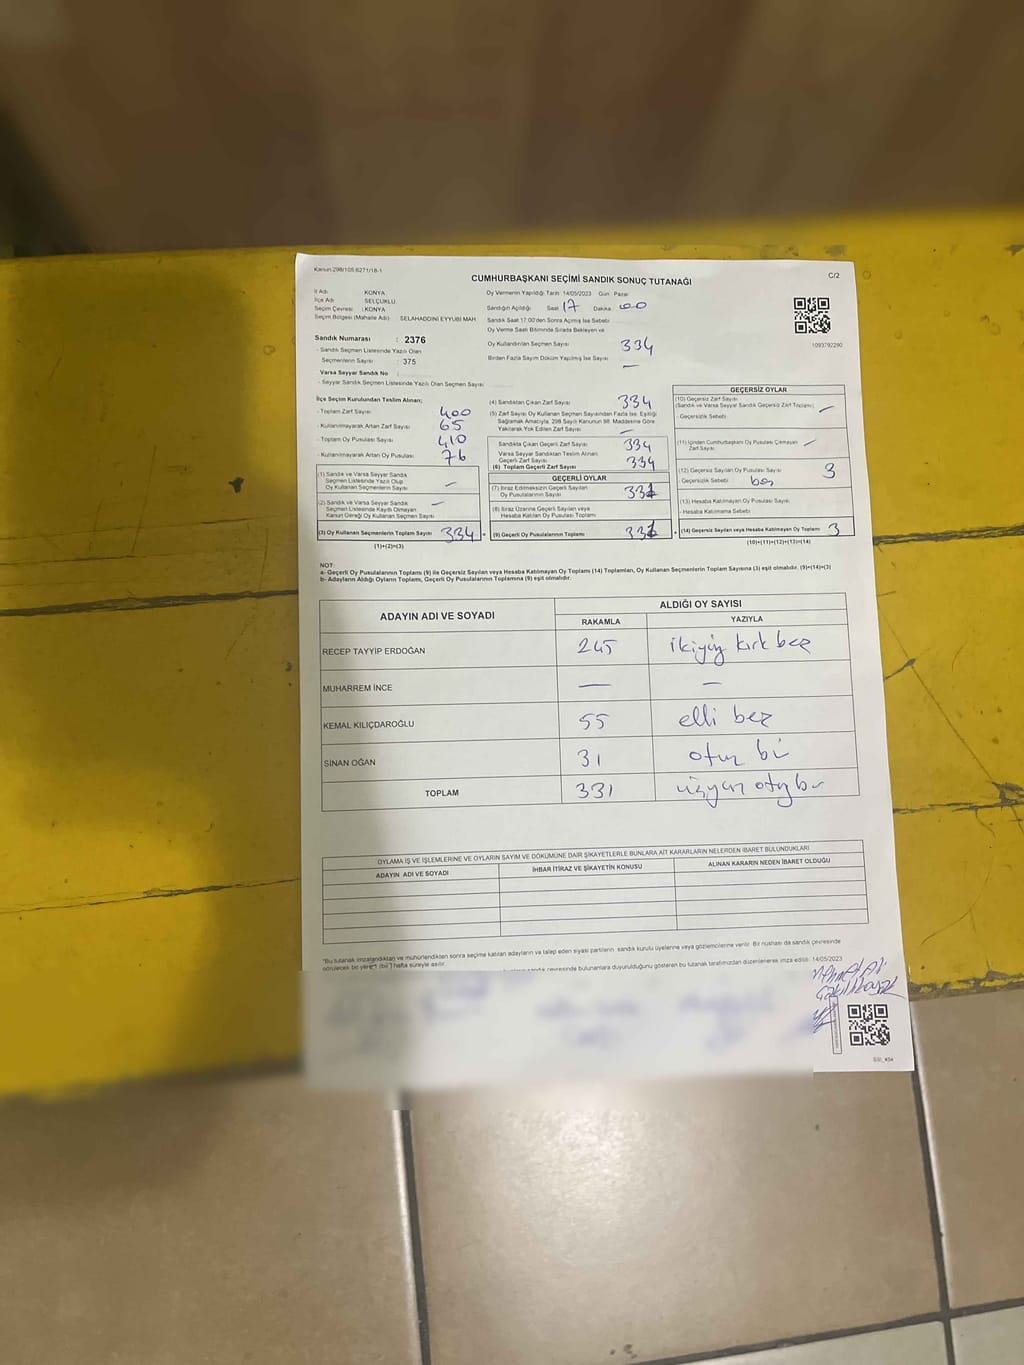 Kanun:298/105.6271/18-1
CUMHURBAŞKANI SEÇİMİ SANDIK SONUÇ TUTANAĞI
C/2
İl Adı KONYA
İlçe Adı SELÇUKLU
Seçim Çevresi : KONYA
Seçim Bölgesi (Mahalle Adı) : SELAHADDİNİ EYYUBİ MAH.
Sandık Numarası : 2376
- Sandık Seçmen Listesinde Yazılı Olan
Seçmenlerin Sayısı : 375
Varsa Seyyar Sandık No :
- Seyyar Sandık Seçmen Listesinde Yazılı Olan Seçmen Sayısı :
Oy Vermenin Yapıldığı Tarih: 14/05/2023 Gün : Pazar
Sandığın Açıldığı Saat 17 Dakika 00
Sandık Saat 17:00'den Sonra Açılmış İse Sebebi
Oy Verme Saati Bitiminde Sırada Bekleyen ve
Oy Kullandırılan Seçmen Sayısı 334
Birden Fazla Sayım Döküm Yapılmış İse Sayısı —
1093792290
İlçe Seçim Kurulundan Teslim Alınan;
- Toplam Zarf Sayısı 400
- Kullanılmayarak Artan Zarf Sayısı 65
- Toplam Oy Pusulası Sayısı 410
- Kullanılmayarak Artan Oy Pusulası 76
(1) Sandık ve Varsa Seyyar Sandık
Seçmen Listesinde Yazılı Olup
Oy Kullanan Seçmenlerin Sayısı —
(2) Sandık ve Varsa Seyyar Sandık
Seçmen Listesinde Kayıtlı Olmayan
Kanun Gereği Oy Kullanan Seçmen Sayısı —
(3) Oy Kullanan Seçmenlerin Toplam Sayısı 334
(1)+(2)=(3)
(4) Sandıktan Çıkan Zarf Sayısı 334
(5) Zarf Sayısı Oy Kullanan Seçmen Sayısından Fazla İse, Eşitliği
Sağlamak Amacıyla, 298 Sayılı Kanunun 98. Maddesine Göre
Yakılarak Yok Edilen Zarf Sayısı —
Sandıkta Çıkan Geçerli Zarf Sayısı 334
Varsa Seyyar Sandıktan Teslim Alınan
Geçerli Zarf Sayısı
(6) Toplam Geçerli Zarf Sayısı 334
GEÇERLİ OYLAR
(7) İtiraz Edilmeksizin Geçerli Sayılan
Oy Pusulalarının Sayısı 331
(8) İtiraz Üzerine Geçerli Sayılan veya
Hesaba Katılan Oy Pusulası Toplamı
(9) Geçerli Oy Pusulalarının Toplamı 331
GEÇERSİZ OYLAR
(10) Geçersiz Zarf Sayısı
(Sandık ve Varsa Seyyar Sandık Geçersiz Zarf Toplamı) —
- Geçersizlik Sebebi
(11) İçinden Cumhurbaşkanı Oy Pusulası Çıkmayan —
Zarf Sayısı
(12) Geçersiz Sayılan Oy Pusulası Sayısı 3
- Geçersizlik Sebebi boş
(13) Hesaba Katılmayan Oy Pusulası Sayısı
- Hesaba Katılmama Sebebi
(14) Geçersiz Sayılan veya Hesaba Katılmayan Oy Toplamı 3
(10)+(11)+(12)+(13)=(14)
NOT:
a- Geçerli Oy Pusulalarının Toplamı (9) ile Geçersiz Sayılan veya Hesaba Katılmayan Oy Toplamı (14) Toplamları, Oy Kullanan Seçmenlerin Toplam Sayısına (3) eşit olmalıdır. (9)+(14)=(3)
b- Adayların Aldığı Oyların Toplamı, Geçerli Oy Pusulalarının Toplamına (9) eşit olmalıdır.
ADAYIN ADI VE SOYADI
ALDIĞI OY SAYISI
RAKAMLA YAZIYLA
RECEP TAYYİP ERDOĞAN 245 ikiyüz kırk beş
MUHARREM İNCE — —
KEMAL KILIÇDAROĞLU 55 elli beş
SİNAN OĞAN 31 otuz bi
TOPLAM 331
OYLAMA İŞ VE İŞLEMLERİNE VE OYLARIN SAYIM VE DÖKÜMÜNE DAİR ŞİKAYETLERLE BUNLARA AİT KARARLARIN NELERDEN İBARET BULUNDUKLARI
ADAYIN ADI VE SOYADI İHBAR İTİRAZ VE ŞİKAYETİN KONUSU ALINAN KARARIN NEDEN İBARET OLDUĞU
"Bu tutanak imzalandıktan ve mühürlendikten sonra seçime katılan adayların ve talep eden siyasi partilerin sandık kurulu üyelerine veya gözlemcilerine verilir. Bir nüshası da sandık çevresinde
görülecek bir yere 1 (bir) hafta süreyle asılır.
çevresinde bulunanlara duyurulduğunu gösteren bu tutanak tarafımızdan düzenlenerek imza edildi. 14/05/2023